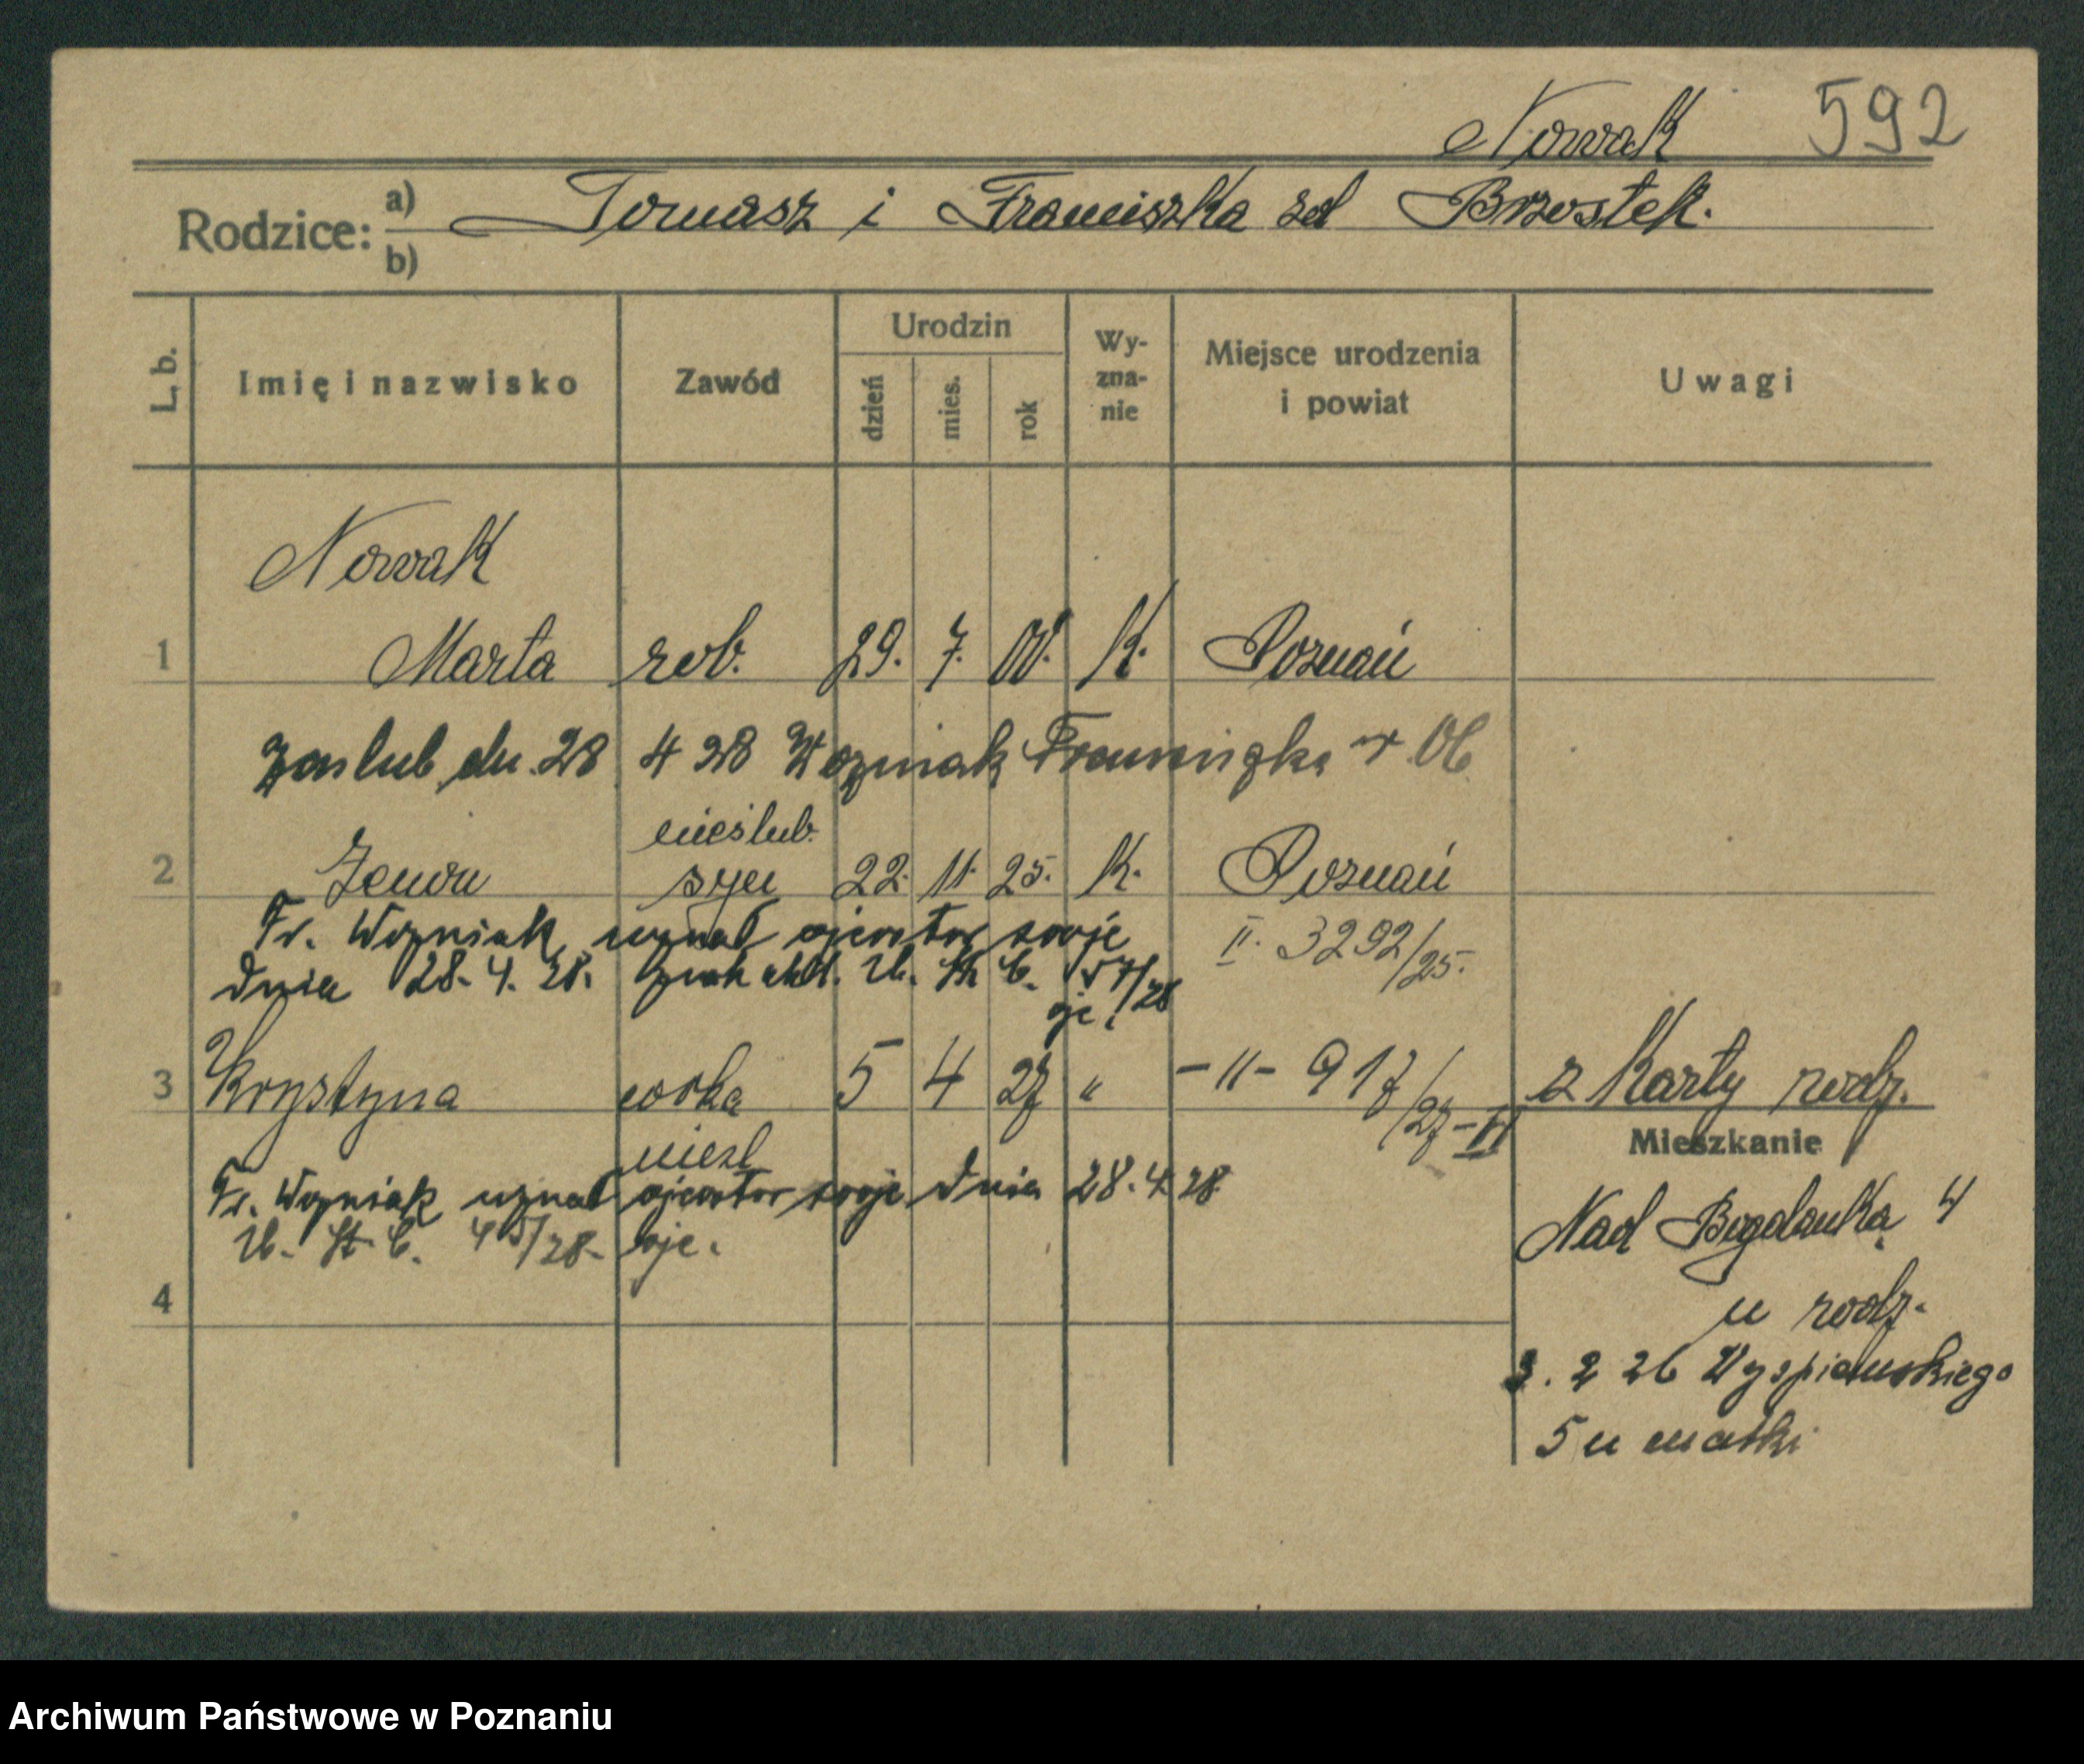 Nowak 592
Rodzice: a) Tomasz i Franciszka zd Brzostek.
b)
L. b. Imię i nazwisko Zawód Urodzin dzień mies. rok Wy-zna-nie Miejsce urodzenia i powiat Uwagi
Nowak
1 Marta rob. 29. 7. 00. K. Poznań
Zaslub dn. 28 4 28 Wozniak Franciszka
nieślub.
2 Zenon syn 22. 11. 25. K. Poznań
Fr. Wozniak uznal ojcostwo swoje II. 3292/25.
dnia 28. 4. 28. St. C. 57/28
oje.
3 Krystyna corka 5 4 27 " -11- 917/27-II z Karty rodz.
niesl
Mieszkanie
Fr. Wozniak uznal ojcostwo swoje dnia 28. 4. 28
St. C. 45/28- oje.
Nad Bogdanką 4
4
u rodz.
3. 2 26 Wyspianskiego
5 u matki
Archiwum Państwowe w Poznaniu